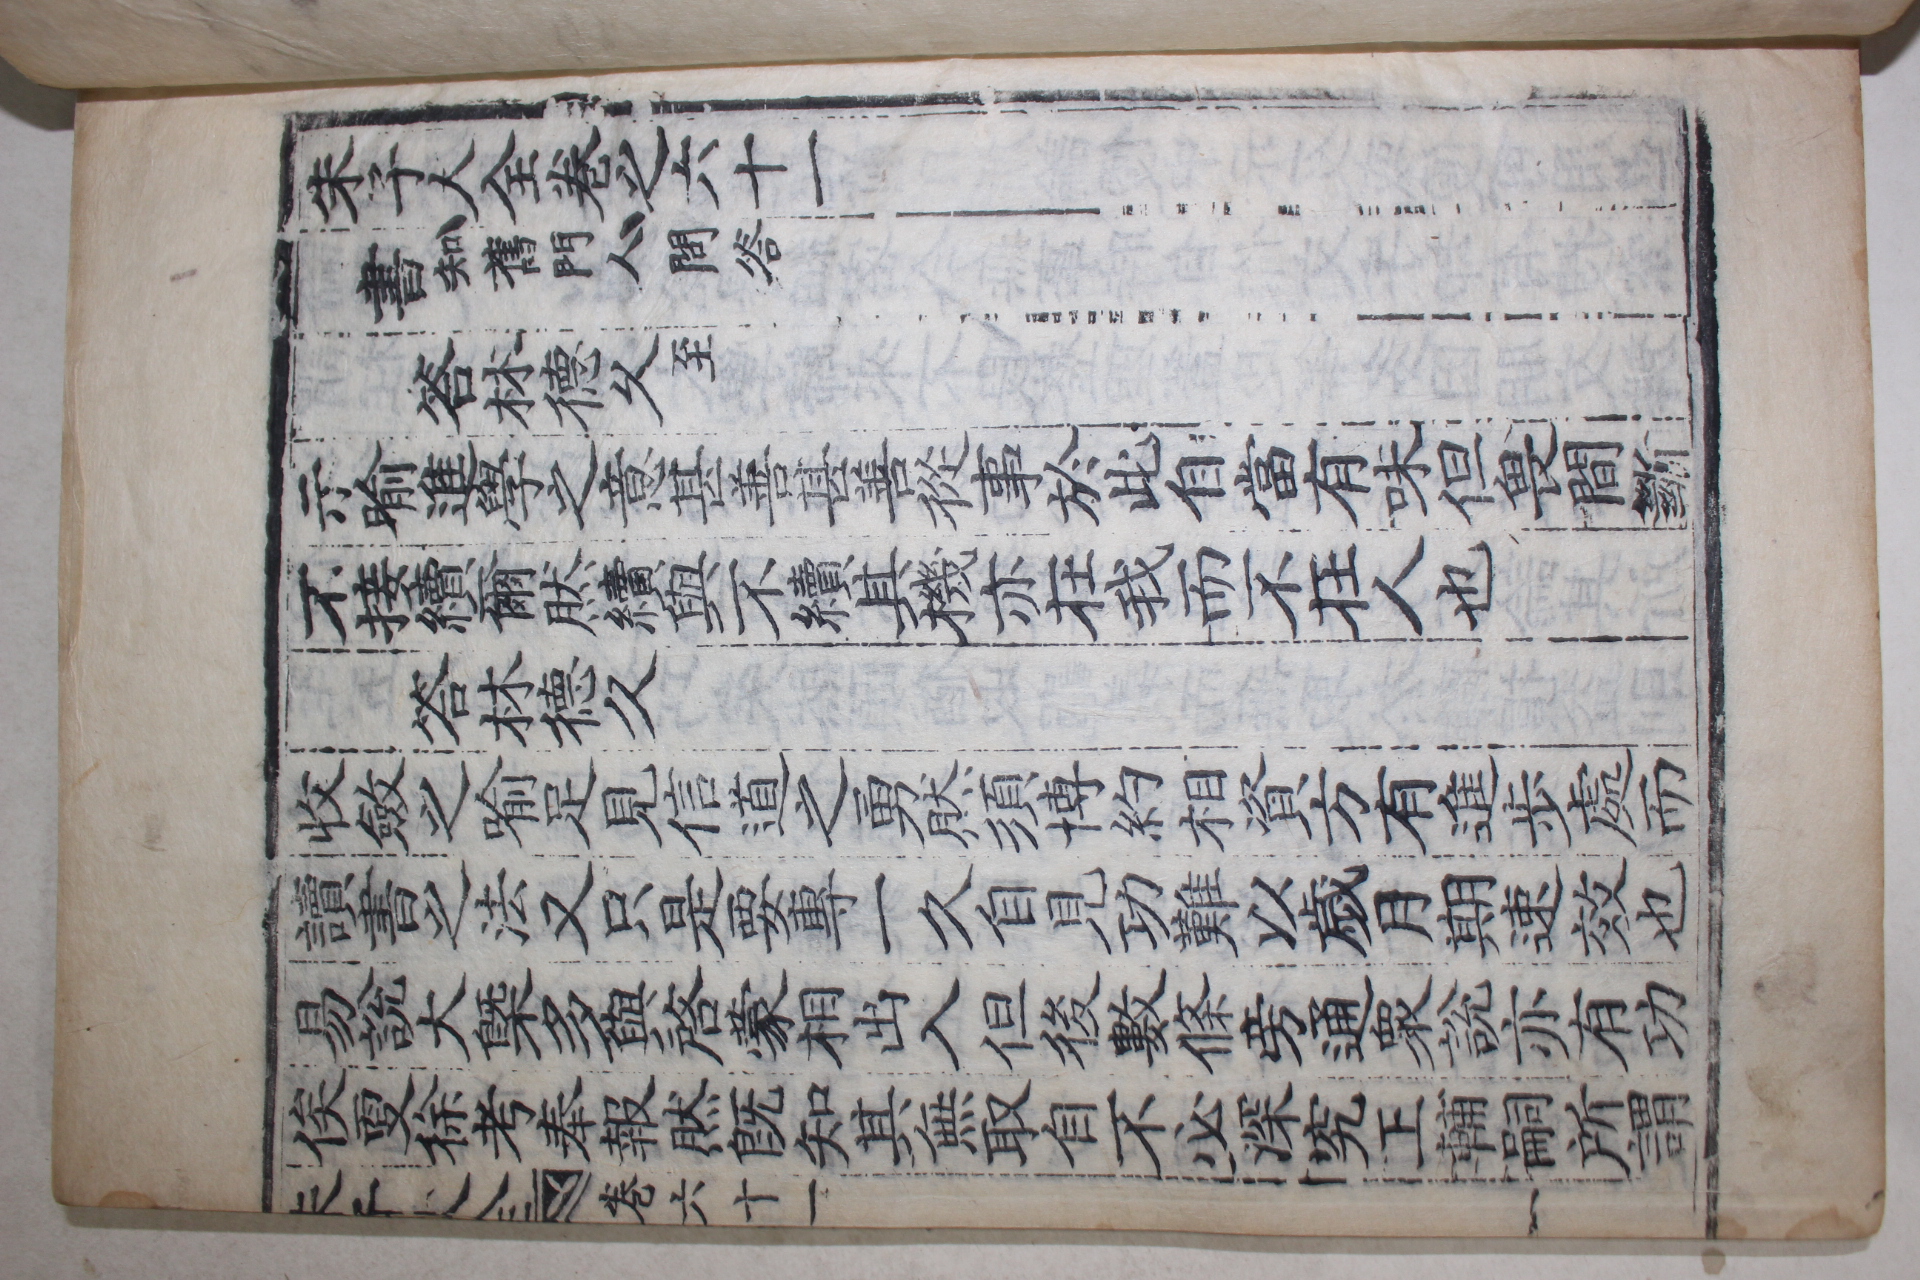 朱子大全卷之六十一
書知舊門人問答
答林德久至
示喻進學之意甚善甚善從事於此自當有味但畏間斷
不接續爾然續與不續其機亦在我而不在人也
答林德久
收斂之喻足見信道之勇然須博約相資方有進步處而
讀書之法又只是要專一久自見功難以歲月期速效也
易說大槩多與啓蒙相出入但後數條旁通衆說亦有功
俟更徐考奉報然旣知其無取自不必深究正韓嗣所謂
朱子大全 卷六十一 一